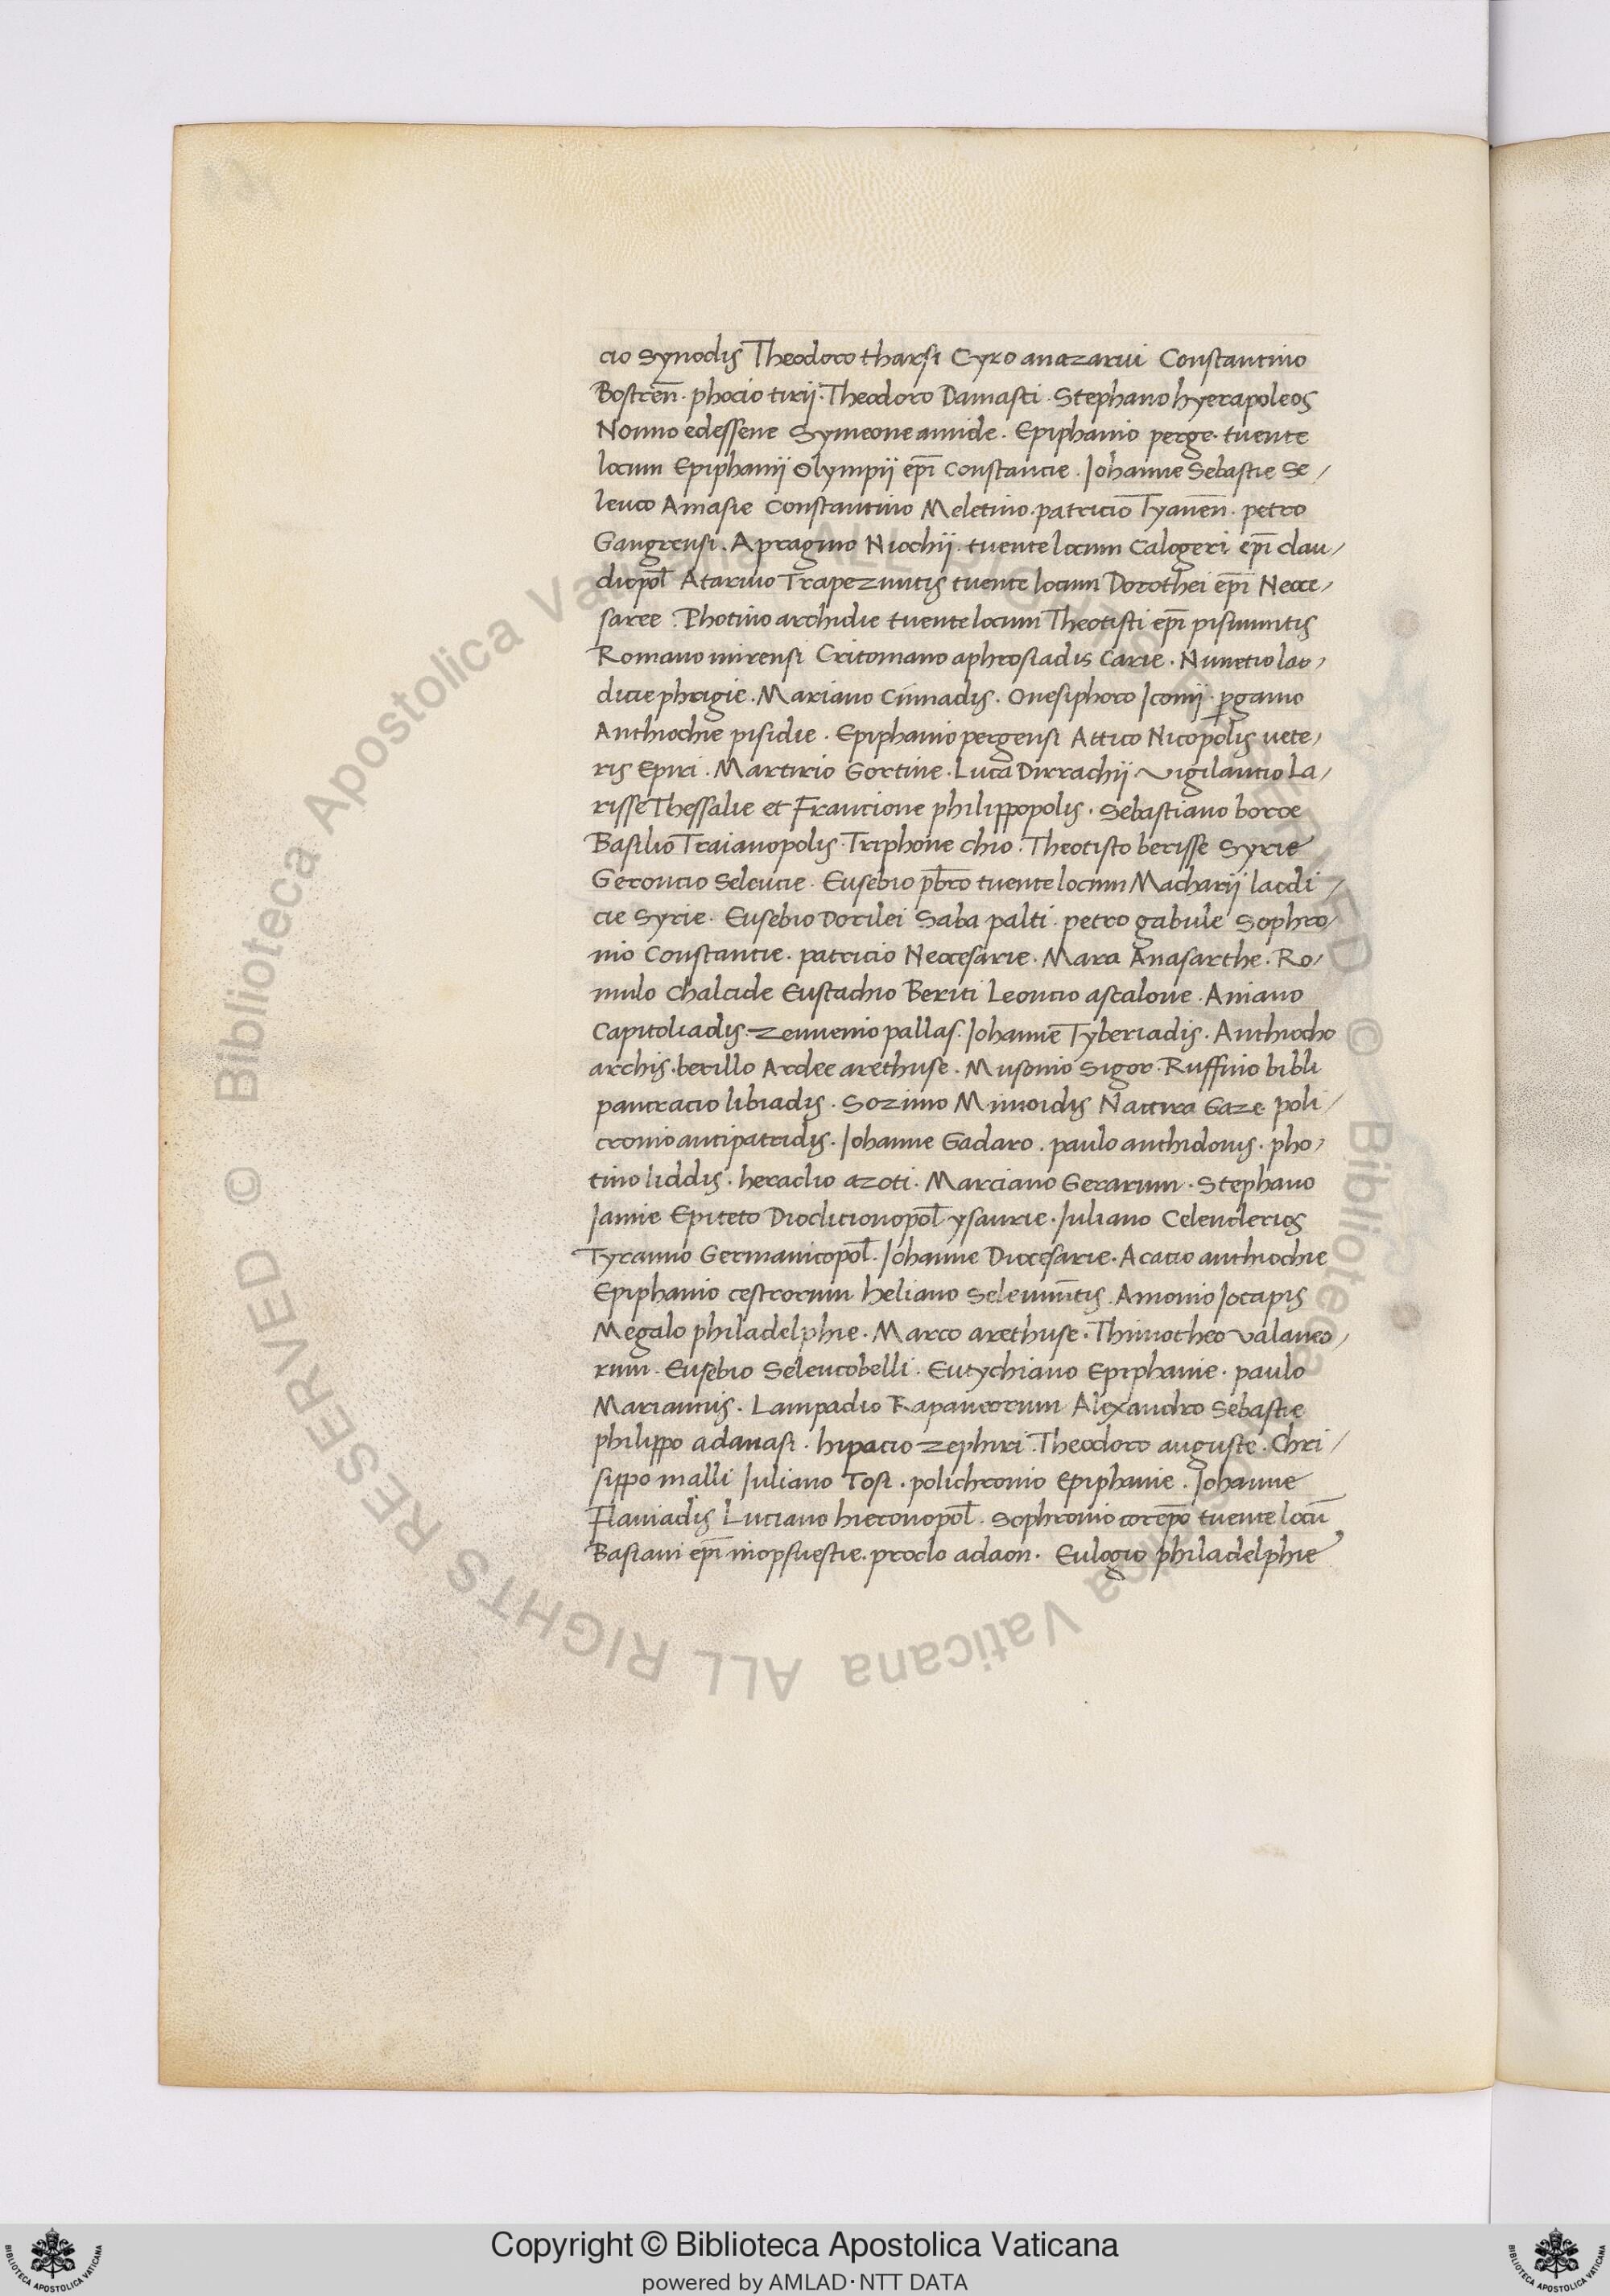 cio synodis Theodoro tharsi Cyro anazarui Constantino
Bostren̄. phocio tirij. Theodoro Damasci. Stephano hyerapoleos
Nonno edessene Symeone amide. Epiphanio perge. tuente
locum Epiphanij Olympii ep̄i Constancie. Johanne Sebastie Se/
leuco Amasie Constantino Meletino. patricio Tyanen̄. petro
Gangrensi. Apragmo Niochij. tuente locum Calogeri ep̄i clau/
diopol̄ Atarmo Trapezuntis tuente locum Dorothei ep̄i Neoce/
saree. Photino archidie tuente locum Theotisti ep̄i pisinuntis
Romano mirensi Critomano aphrosiadis Carie. Nunetio lao/
dicie phrigie. Mariano Cinnadis. Onesiphoro Jconij. ꝑgamo
Anthiochie pisidie. Epiphanio pergensi Attico Nicopolis uete/
ris Epiri. Martirio Gortine. Luca Dirrachij Vigilantio La/
risse Thessalie et Francione philippopolis. Sebastiano boroe
Basilio Traianopolis. Triphone chio. Theotisto berisse Syrie
Geroncio Seleucie. Eusebio pb̄ro tuente locum Macharij laodi/
cie Syrie. Eusebio Dorilei Saba palti. petro gabule Sophro/
nio Constantie. patricio Neocesarie. Mara Anasarthe. Ro/
mulo Chalcide Eustachio Beriti Leoncio ascalone. Aniano
Capitoliadis. Zennenio pallas. Johanne Tyberiadis. Anthiocho
archis. berillo Ardee arethuse. Musonio Sigor. Ruffino bibli
pancracio libiadis. Sozimo Minoidis Nattira Gaze poli/
cronio antipatridis. Johanne Gadaro. paulo anthidonis. pho/
tino liddis. heraclio azoti. Marciano Gerarum. Stephano
Jamie Epiteto Dioclitionopol̄ ysaurie. Juliano Celenderios
Tyranno Germanicopol̄. Johanne Diocesarie. Acacio anthiochie
Epiphanio cestrorum heliano Selenun̄tis. Amonio Jotapis
Megalo philadelphie. Marco arethuse. Thimotheo Valaneo/
rum. Eusebio Seleucobelli. Eutychiano Epiphanie. paulo
Mariannis. Lampadio Rapaneorum Alexandro Sebastie
philippo adanasi. hipacio zephiri. Theodoro auguste. Chri/
sippo malli Juliano Tosi. polichronio Epiphanie. Johanne
Flauiadis Luciano hieronopol̄. Sophronio corep̄o tuente locū
Basiani ep̄i mopsuestie. proclo adaon. Eulogio philadelphie
Copyright © Biblioteca Apostolica Vaticana
powered by AMLAD·NTT DATA